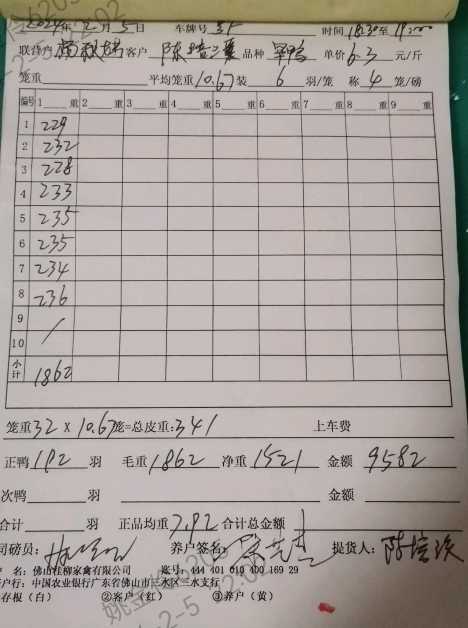 2024年2月5日 车牌号 时间18:30至19:00
联养户 客户 陈培 品种 单鸭 单价6.3元/斤
笼重 平均笼重10.67装6羽/笼 称4笼/磅
编号 1 重 2 重 3 重 4 重 5 重 6 重 7 重 8 重 9 重
1 229
2 232
3 228
4 233
5 235
6 235
7 234
8 236
9 /
10
小计 1862
笼重32×10.67笼=总皮重:341 上车费
正鸭192羽 毛重1862 净重1521 金额9582
次鸭 羽 金额
合计 羽 正品均重7.92 合计总金额
司磅员: 养户签名: 提货人:陈培
户 名:佛山桂柳家禽有限公司 账号:444 401 010 400 169 29
户行:中国农业银行广东省佛山市三水区三水支行
存根(白) ②客户(红) ③养户(黄)